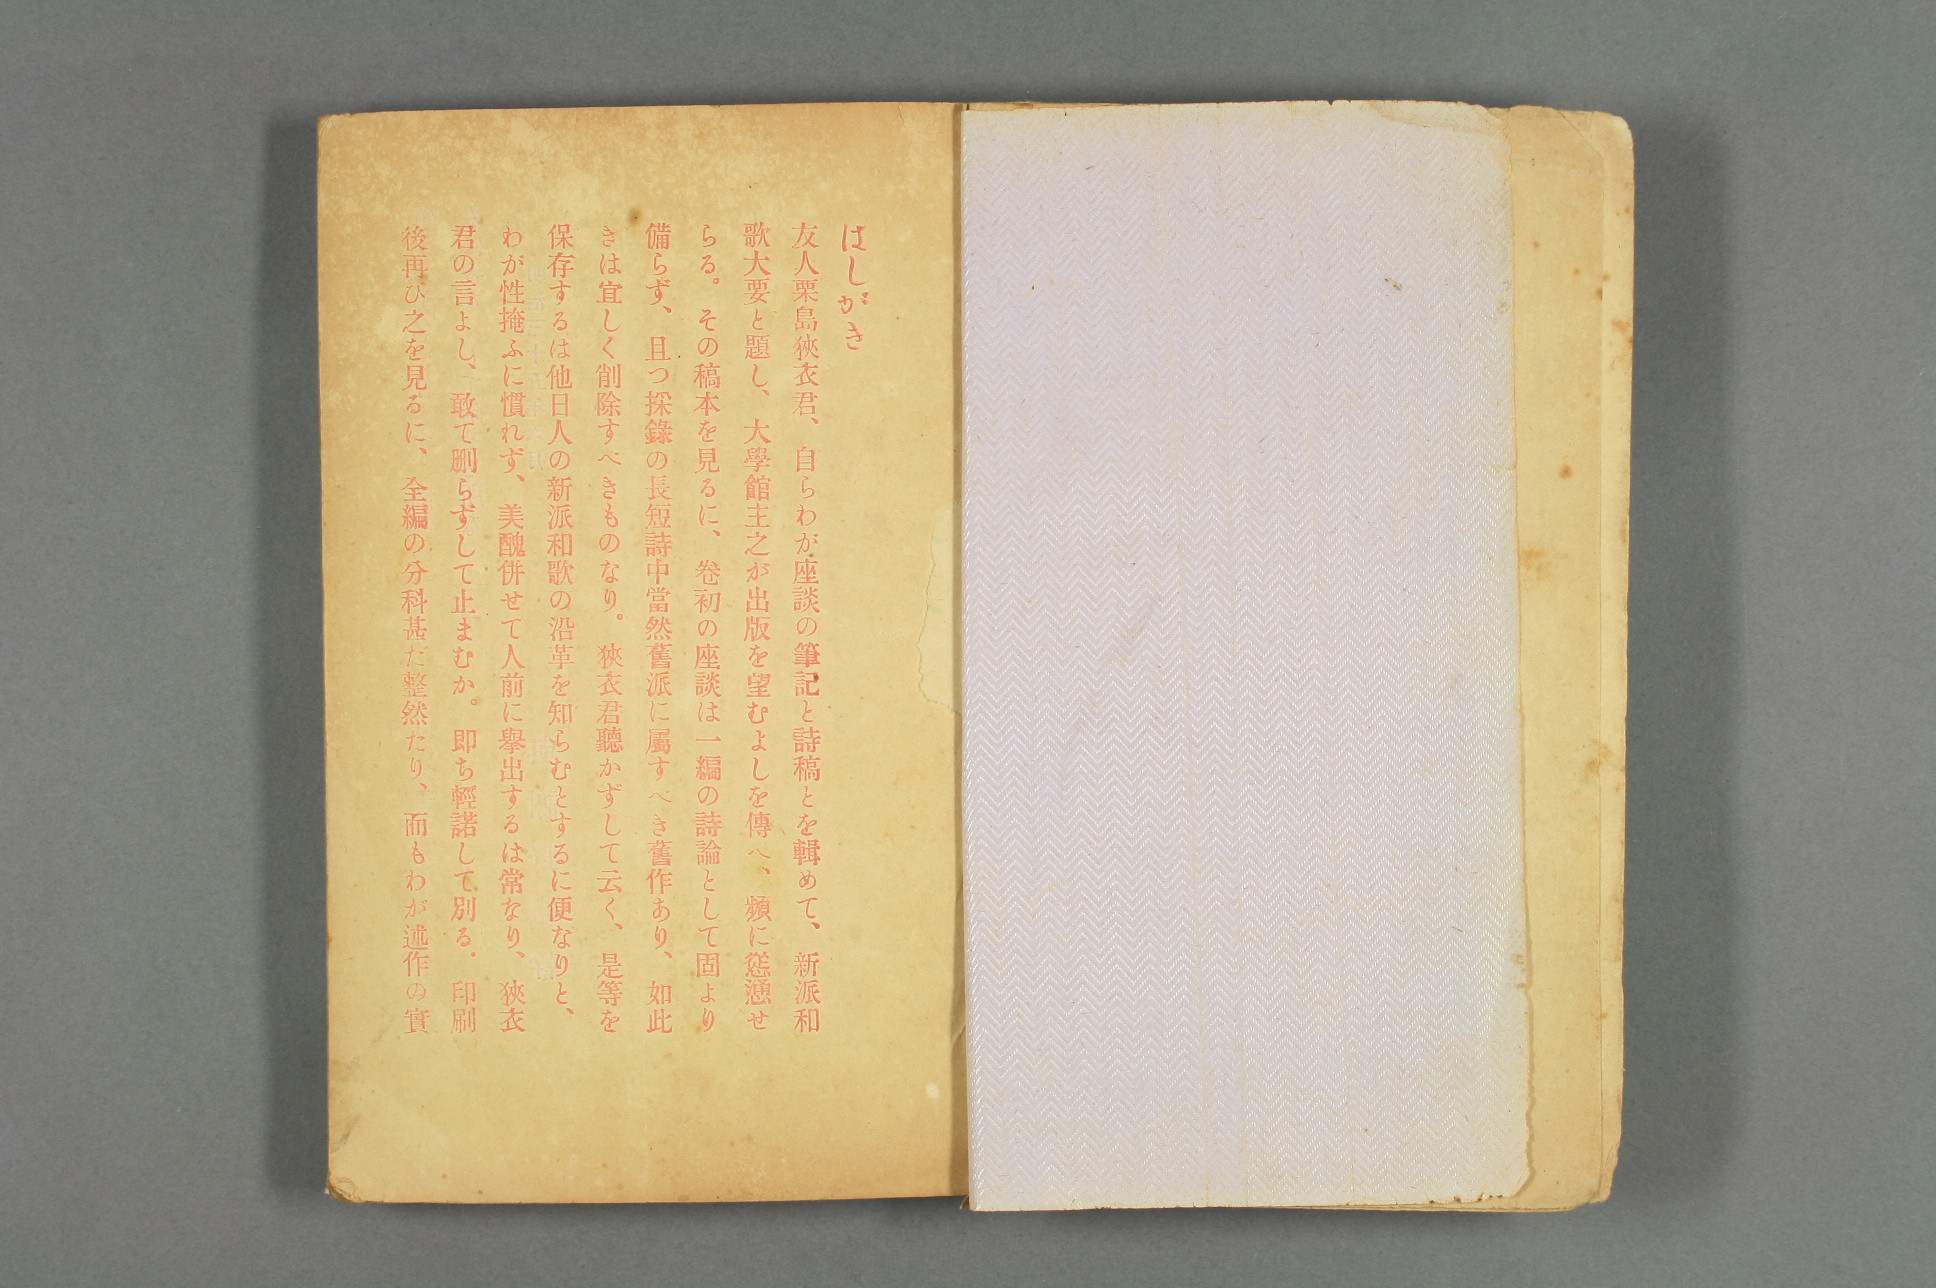 はしがき
友人栗島狹衣君、自らわが座談の筆記と詩稿とを輯めて、新派和
歌大要と題し、大學館主之が出版を望むよしを傳へ、頻に慫慂せ
らる。その稿本を見るに、卷初の座談は一編の詩論として固より
備らず、且つ採錄の長短詩中當然舊派に屬すべき舊作あり、如此
きは宜しく削除すべきものなり。狹衣君聽かずして云く、是等を
保存するは他日人の新派和歌の沿革を知らむとするに便なりと、
わが性掩ふに慣れず、美醜併せて人前に擧出するは常なり、狹衣
君の言よし、敢て刪らずして止まむか。即ち輕諾して別る。印刷
後再ひ之を見るに、全編の分科甚だ整然たり、而もわが述作の實